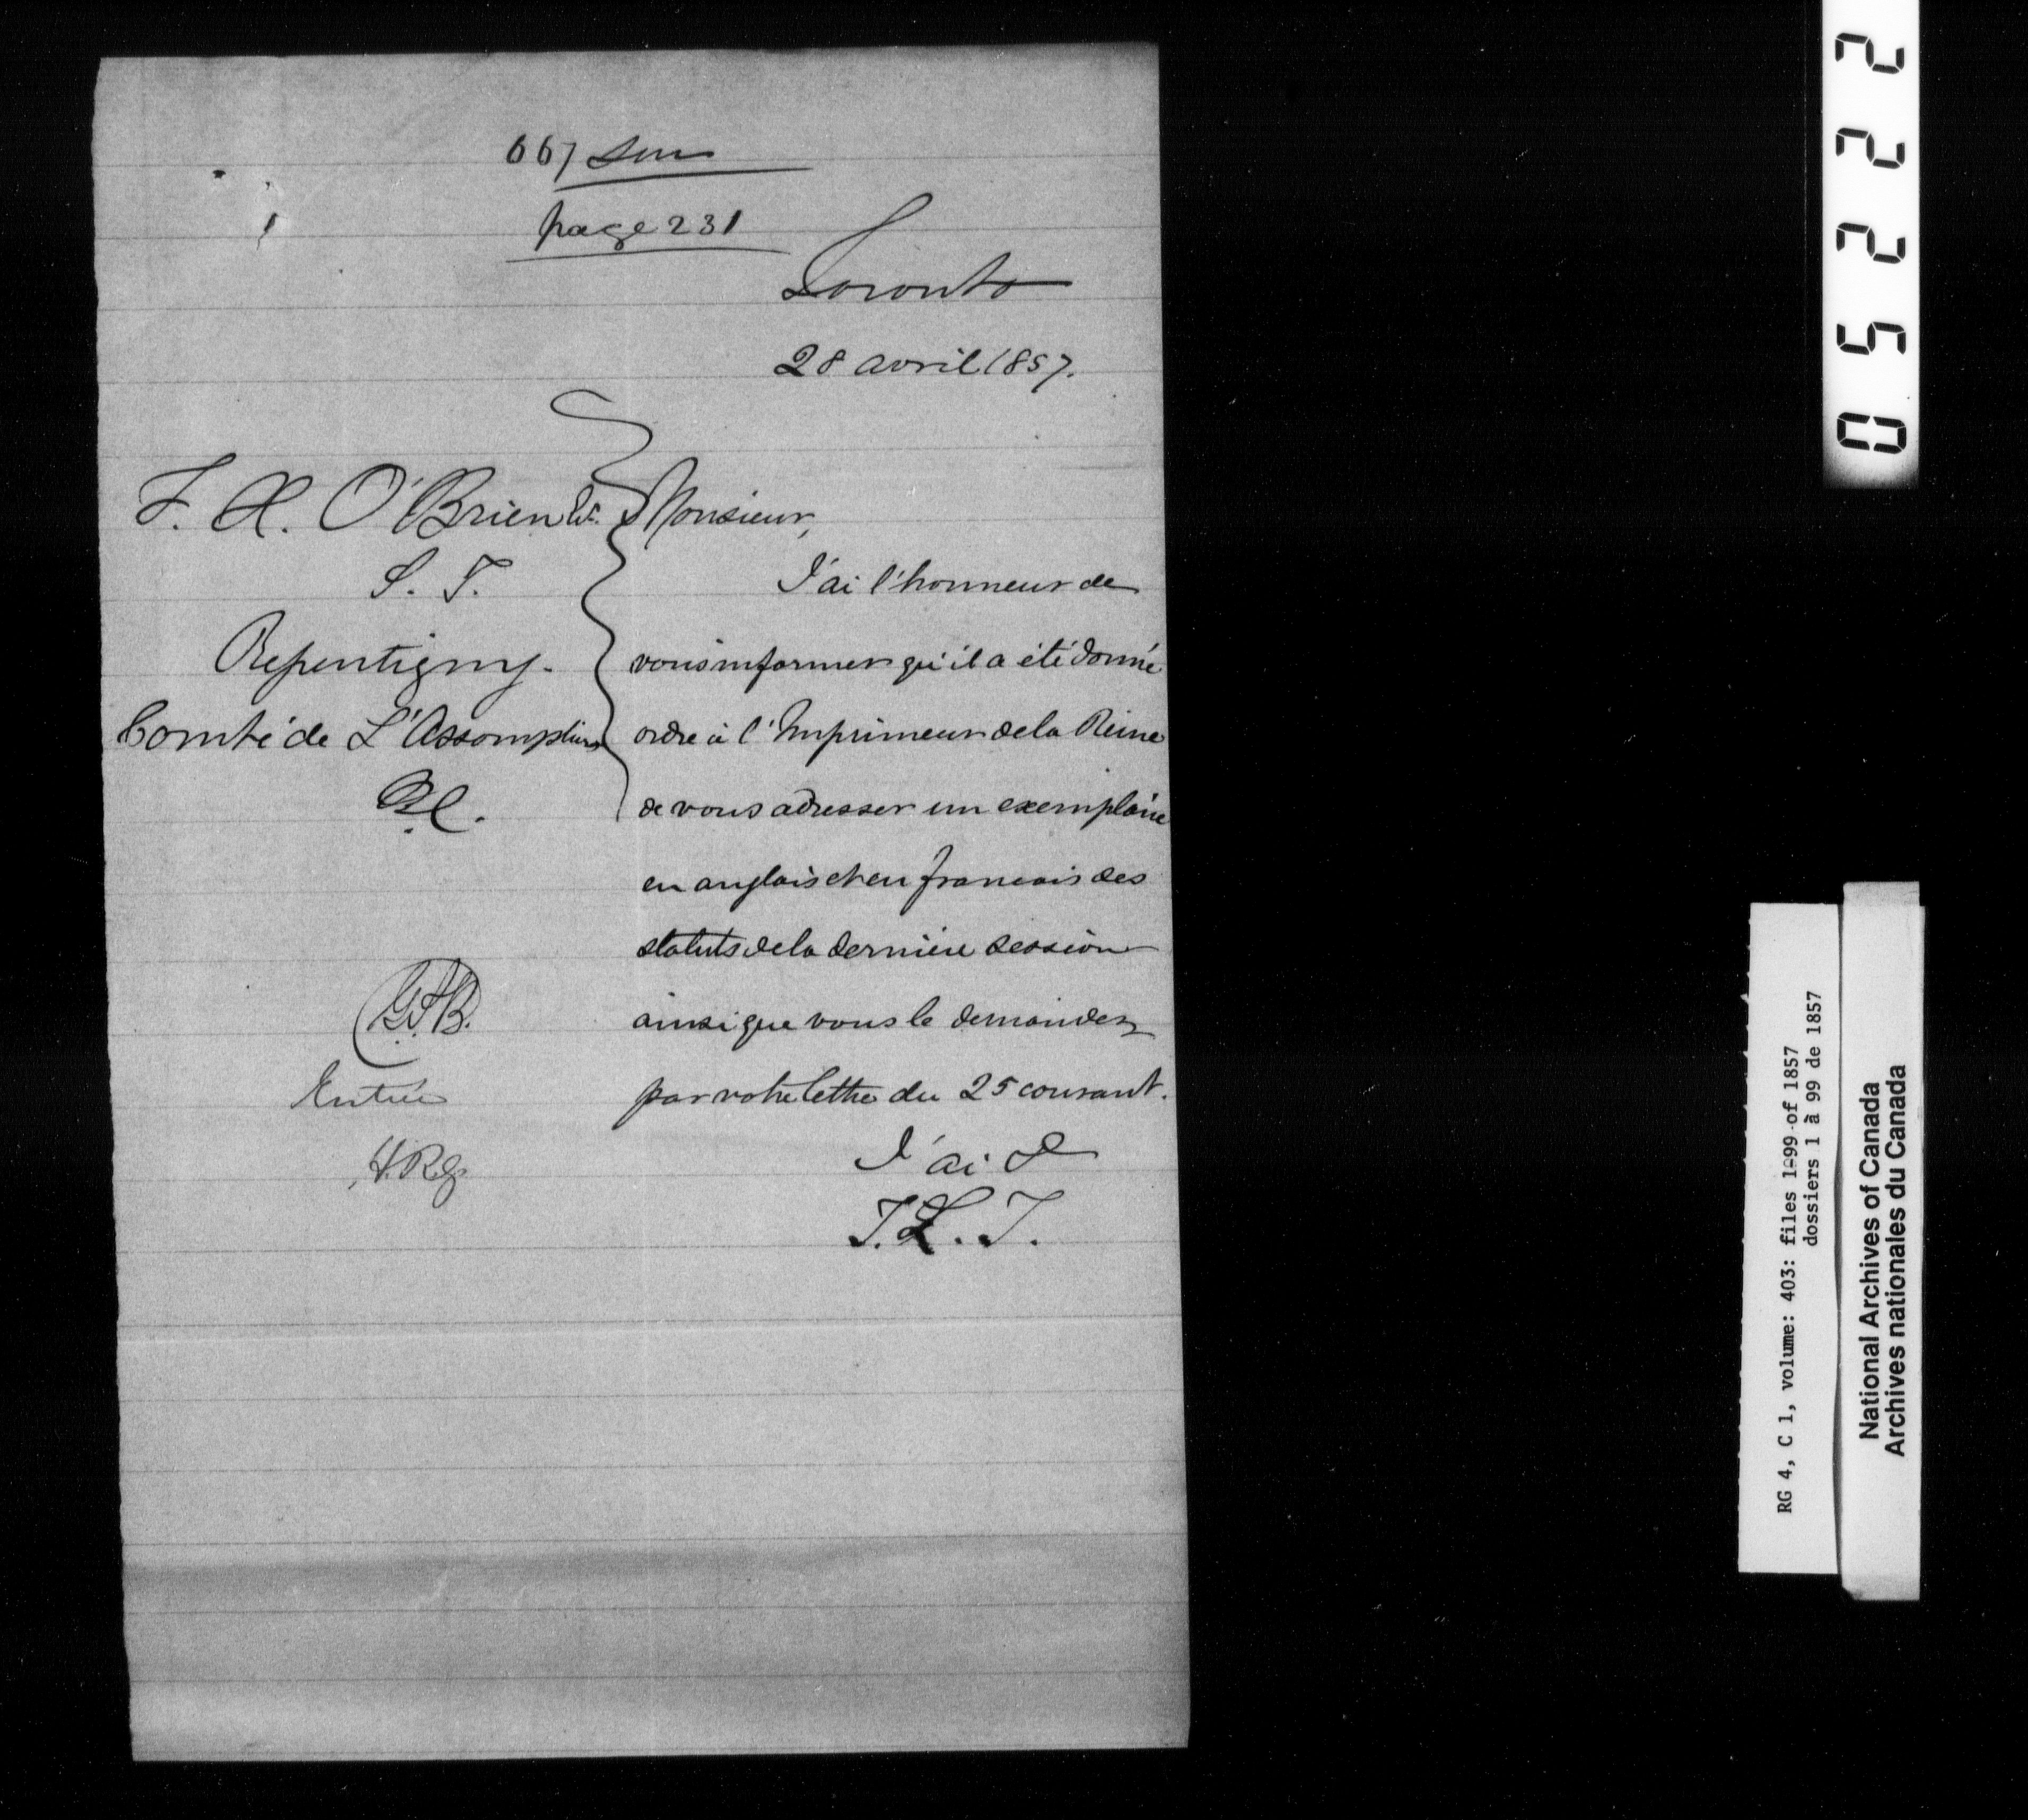 667
page 231
Toronto
28 avril 1857.
F. X. O'Brien
S. T.
Repentigny.
Comté de L'Assomption
B.C.
Monsieur,
J'ai l'honneur de
vous informer qu'il a été donné
ordre à l'Imprimeur de la Reine
de vous adresser un exemplaire
en anglais et en francais des
statuts de la dernière session
ainsi que vous le demandez
par votre lettre du 25 courant.
J'ai &
T. L. T.
Entrée
05222
RG 4, C 1, volume: 403: files 1-99 of 1857
dossiers 1 à 99 de 1857
National Archives of Canada
Archives nationales du Canada